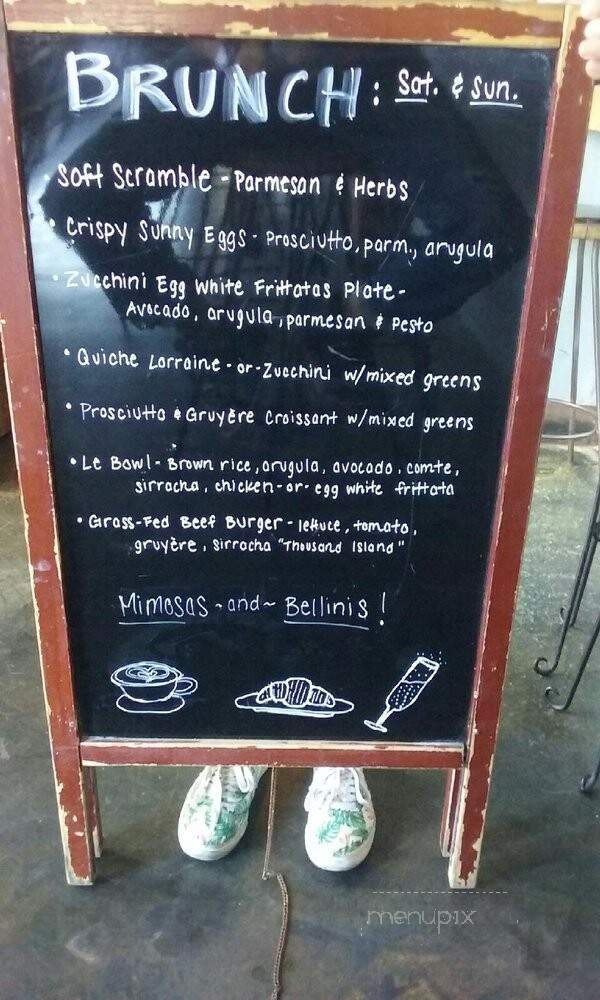 BRUNCH: Sat. & Sun.
• Soft Scramble - Parmesan & Herbs
• Crispy Sunny Eggs - Prosciutto, parm., arugula
• Zucchini Egg White Frittatas Plate-
Avocado, arugula, parmesan & Pesto
• Quiche Lorraine - or - Zucchini w/mixed greens
• Prosciutto & Gruyère Croissant w/mixed greens
• Le Bowl - Brown rice, arugula, avocado, comte,
sirracha, chicken - or - egg white frittata
• Grass-Fed Beef Burger - lettuce, tomato,
gruyère, Sirracha "Thousand Island"
Mimosas ~ and ~ Bellinis!
menupix